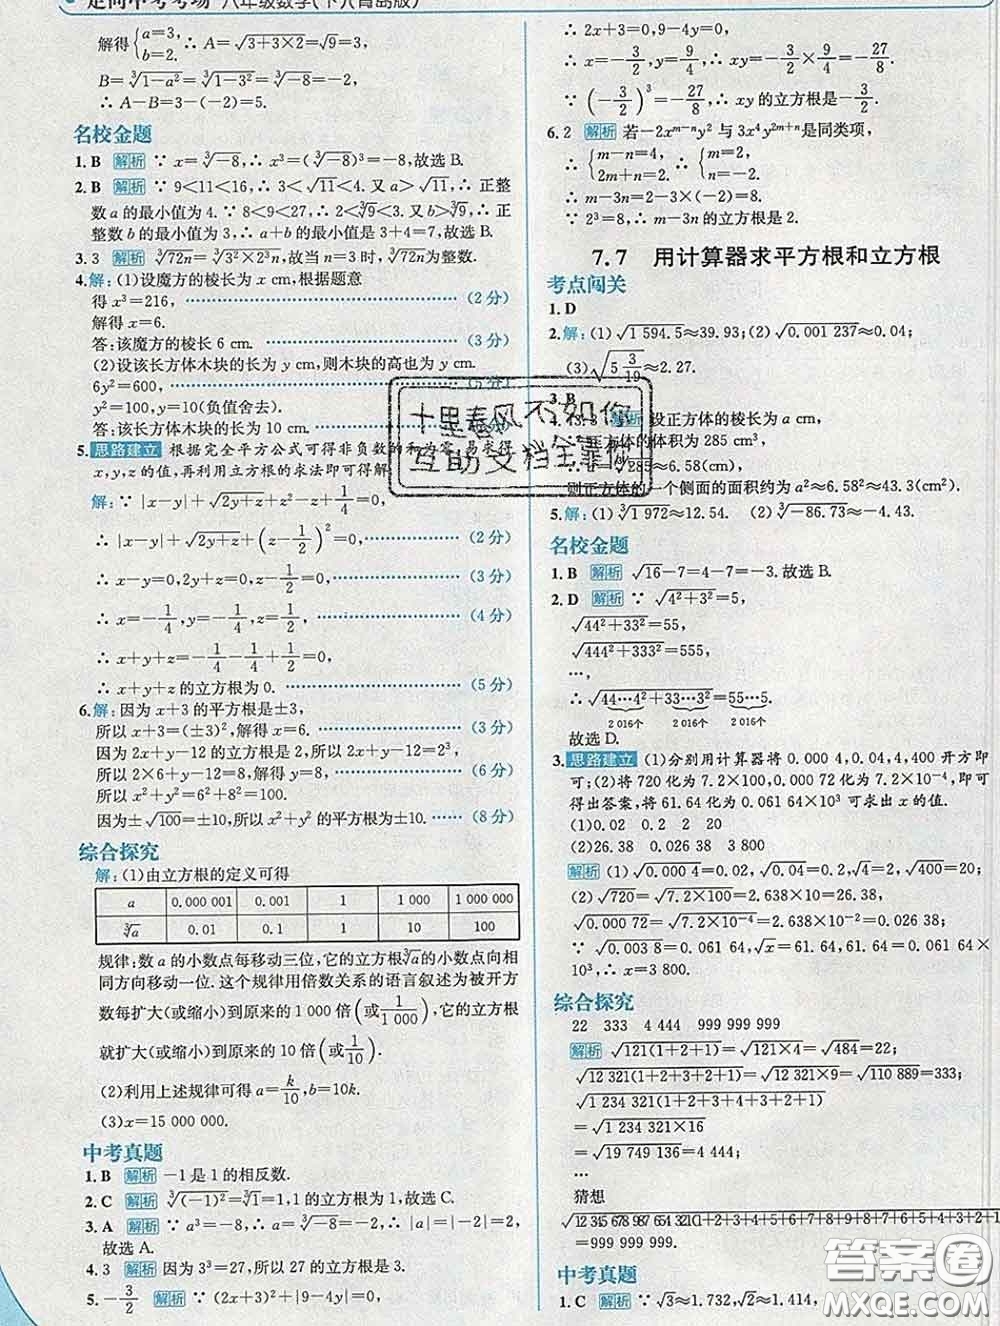 走向中考考场 八年级数学(下)(青岛版)
解得{a=3, b=2. ∴ A=√(3+3×2)=√9=3,
B=∛(1-a²)=∛(1-3²)=∛-8=-2,
∴ A-B=3-(-2)=5.
名校金题
1. B 解析 ∵ x=∛-8,∴ x³=(∛-8)³=-8,故选 B.
2. B 解析 ∵ 9<11<16,∴ 3<√11<4. 又 a>√11,∴ 正整
数 a 的最小值为 4. ∵ 8<9<27,∴ 2<∛9<3. 又 b>∛9,∴ 正
整数 b 的最小值为 3,∴ a+b 的最小值为 3+4=7,故选 B.
3. 3 解析 ∛72n=∛(3²×2³n),故当 n=3 时,∛72n为整数.
4. 解:(1)设魔方的棱长为 x cm,根据题意
得 x³=216, (2 分)
解得 x=6.
答:该魔方的棱长 6 cm. (3 分)
(2)设该长方体木块的长为 y cm,则木块的高也为 y cm.
6y²=600,
y²=100,y=10(负值舍去).
答:该长方体木块的长为 10 cm.
5. 思路建立 根据完全平方公式可得非负数的和为零,易求得
x,y,z 的值,再利用立方根的求法即可得解.
解:∵ |x-y|+√(2y+z)+z²-z+1/4=0,
∴ |x-y|+√(2y+z)+(z-1/2)²=0, (2 分)
∴ x-y=0,2y+z=0,z-1/2=0, (3 分)
∴ x=-1/4,y=-1/4,z=1/2, (4 分)
∴ x+y+z=-1/4-1/4+1/2=0,
∴ x+y+z 的立方根为 0. (5 分)
6. 解:因为 x+3 的平方根是±3,
所以 x+3=(±3)²,解得 x=6. (3 分)
因为 2x+y-12 的立方根是 2,所以 2x+y-12=2³,
所以 2×6+y-12=8,解得 y=8, (6 分)
所以 x²+y²=6²+8²=100.
因为±√100=±10,所以 x²+y² 的平方根为±10. (8 分)
综合探究
解:(1)由立方根的定义可得
a 0.000 001 0.001 1 1 000 1 000 000
∛a 0.01 0.1 1 10 100
规律:数 a 的小数点每移动三位,它的立方根∛a的小数点向相
同方向移动一位. 这个规律用倍数关系的语言叙述为被开方
数每扩大(或缩小)到原来的 1 000 倍(或1/1 000),它的立方根
就扩大(或缩小)到原来的 10 倍(或1/10).
(2)利用上述规律可得 a=k/10,b=10k.
(3)x=15 000 000.
中考真题
1. B 解析 -1 是 1 的相反数.
2. C 解析 ∛(-1)²=∛1=1,1 的立方根为 1,故选 C.
3. A 解析 ∵ a³=-8,∴ a=∛-8=-2,∴ |a|=|-2|=2,
故选 A.
4. 3 解析 因为 3³=27,所以 27 的立方根是 3.
5. -3/2 解析 ∵ (2x+3)²+|9-4y|=0,
∴ 2x+3=0,9-4y=0,
∴ x=-3/2,y=9/4,∴ xy=-3/2×9/4=-27/8.
∵ (-3/2)³=-27/8,∴ xy 的立方根是-3/2.
6. 2 解析 若-2xᵐ⁻ⁿy² 与 3x⁴y²ᵐ⁺ⁿ是同类项,
∴ {m-n=4, 2m+n=2. ∴ {m=2, n=-2.
∴ m-3n=2-3×(-2)=8.
∵ 2³=8,∴ m-3n 的立方根是 2.
7.7 用计算器求平方根和立方根
考点闯关
1. D
2. 解:(1)√1 594.5≈39.93;(2)√0.001 237≈0.04;
(3)√(5 3/19)≈2.27.
3. B
4. 43.3 解析 设正方体的棱长为 a cm,
∵ 正方体的体积为 285 cm³,
∴ a=∛285≈6.58(cm),
则正方体的一个侧面的面积约为 a²≈6.58²≈43.3(cm²).
5. 解:(1)∛1 972≈12.54. (2)∛-86.73≈-4.43.
名校金题
1. B 解析 √16-7=4-7=-3. 故选 B.
2. D 解析 ∵ √(4²+3²)=5,
√(44²+33²)=55,
√(444²+333²)=555,
…,
∴ √(44…4²+33…3²)=55…5.
2 016个 2 016个 2 016个
故选 D.
3. 思路建立 (1)分别用计算器将 0.000 4,0.04,4,400 开方即
可;(2)将 720 化为 7.2×100,0.000 72 化为 7.2×10⁻⁴,即可
得出答案,将 61.64 化为 0.061 64×10³ 可求出 x 的值.
(1)0.02 0.2 2 20
(2)26.38 0.026 38 3 800
解析 (1)√0.000 4=0.02,√0.04=0.2,√4=2,√400=20;
(2)√720=√(7.2×100)=2.638×10=26.38,
√0.000 72=√(7.2×10⁻⁴)=2.638×10⁻²=0.026 38,
∵ √0.003 8=0.061 64,√x=61.64=0.061 64×
10³,∴ x=3 800.
综合探究
22 333 4 444 999 999 999
解析 √121(1+2+1)=√(121×4)=√484=22;
√12 321(1+2+3+2+1)=√(12 321×9)=√110 889=333,
√1 234 321(1+2+3+4+3+2+1)=
√(1 234 321×16)
=√19 749 136=4 444;
…
猜想
√12 345 678 987 654 321(1+2+3+4+5+6+7+8+9+8+7+6+5+4+3+2+1
=999 999 999.
中考真题
1. C 解析 ∵ √3≈1.732,√2≈1.414,
十里春风不如你
互助文档全靠你
答案圈
MXQE.COM